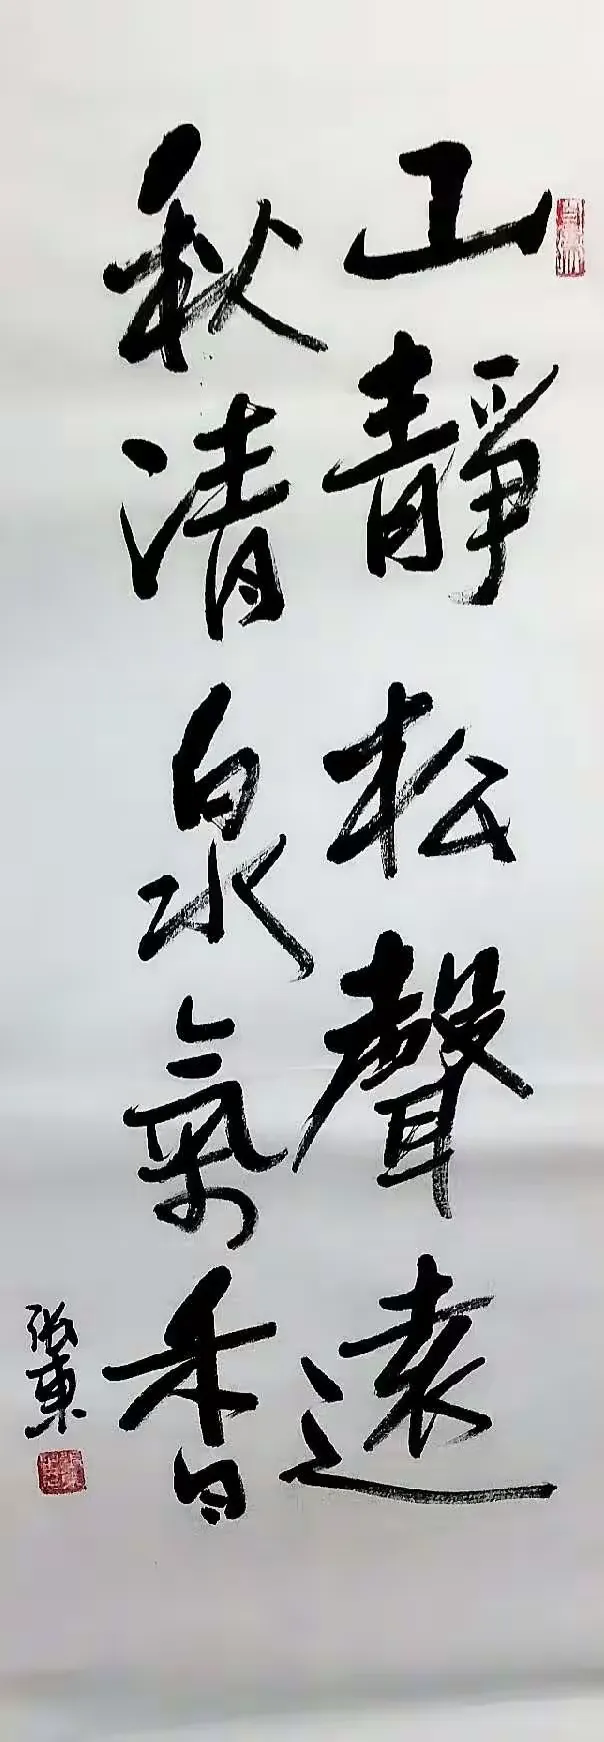 山靜松聲遠
秋清泉氣香
張東